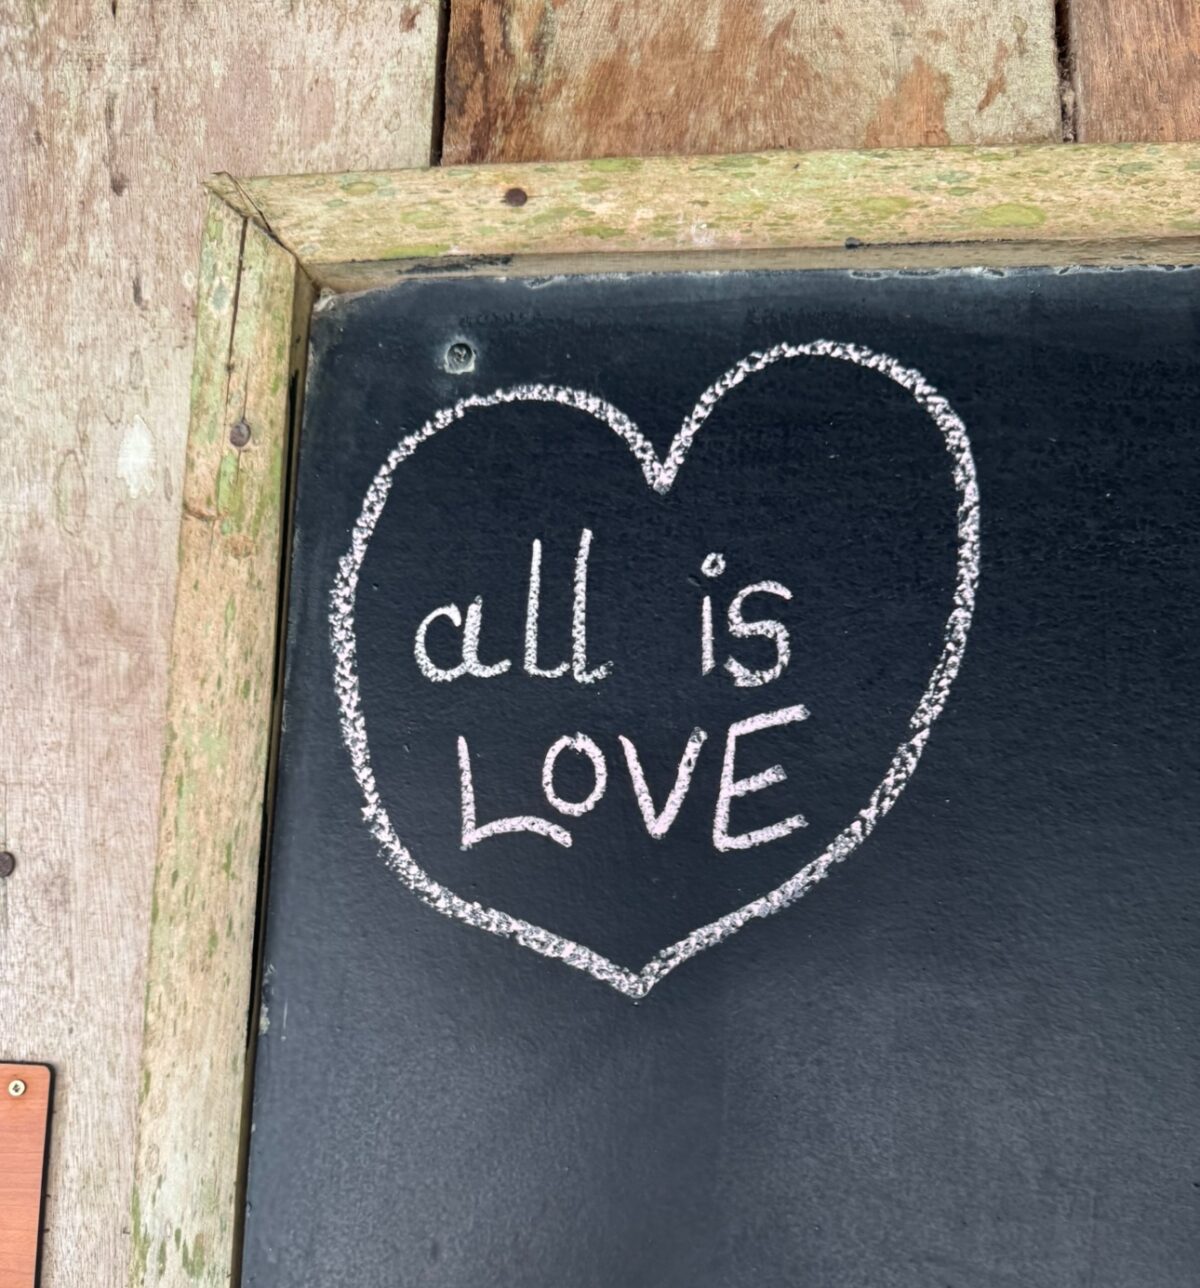 all is
LOVE